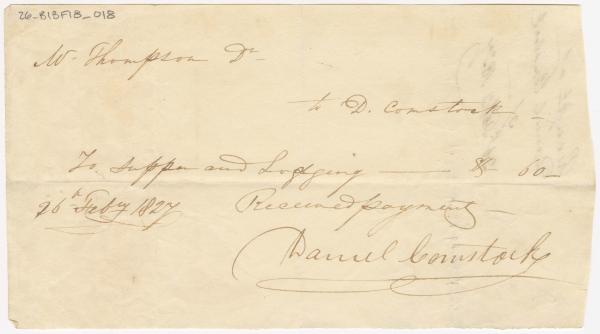 26-B13F18_018
Mr Thompson Dr
to D. Comstock
To supper and Lodging $ 60
26th Feby 1827 Received payment
Daniel Comstock